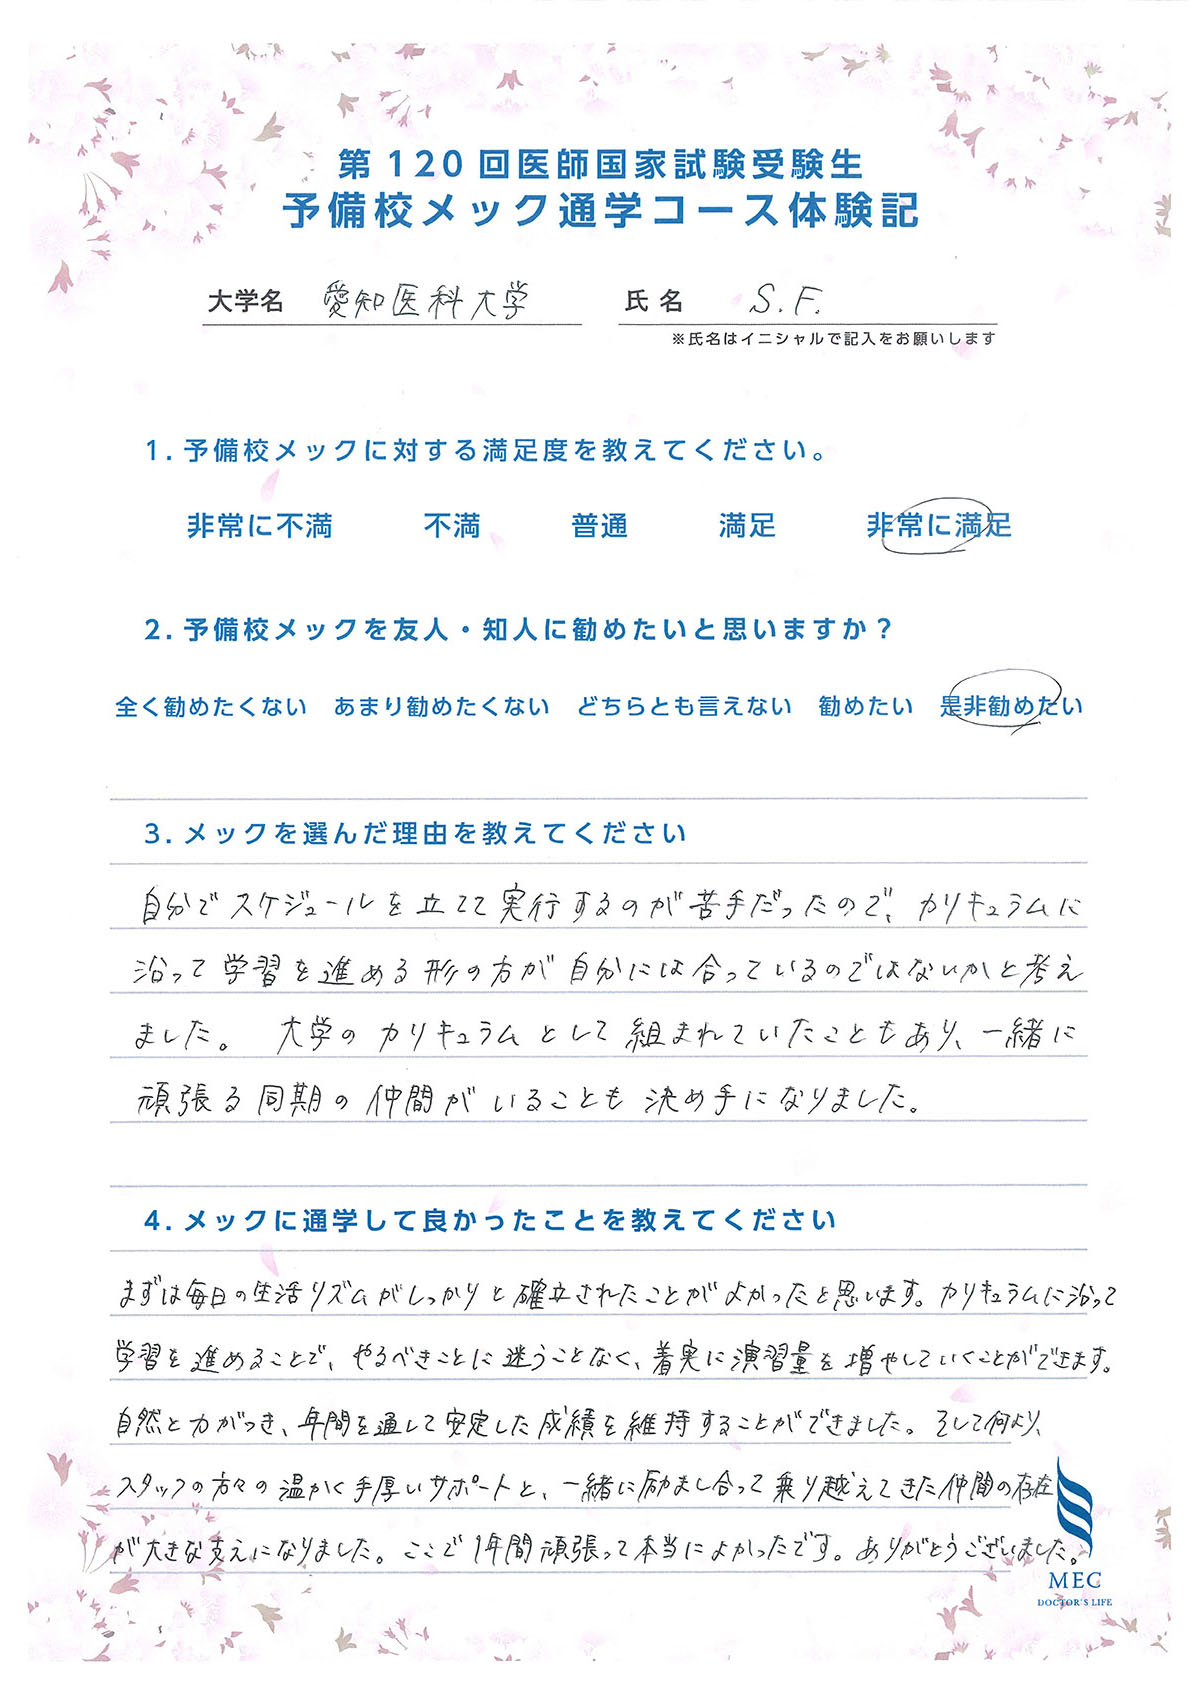 第120回医師国家試験受験生
予備校メック通学コース体験記
大学名 愛知医科大学 氏名 S.F.
※氏名はイニシャルで記入をお願いします
1. 予備校メックに対する満足度を教えてください。
非常に不満 不満 普通 満足 非常に満足
2. 予備校メックを友人・知人に勧めたいと思いますか？
全く勧めたくない あまり勧めたくない どちらとも言えない 勧めたい 是非勧めたい
3. メックを選んだ理由を教えてください
自分でスケジュールを立てて実行するのが苦手だったので、カリキュラムに
沿って学習を進める形の方が自分には合っているのではないかと考え
ました。 大学のカリキュラムとして組まれていたこともあり、一緒に
頑張る同期の仲間がいることも決め手になりました。
4. メックに通学して良かったことを教えてください
まずは毎日の生活リズムがしっかりと確立されたことがよかったと思います。カリキュラムに沿って
学習を進めることで、やるべきことに迷うことなく、着実に演習量を増やしていくことができます。
自然と力がつき、年間を通して安定した成績を維持することができました。そして何より、
スタッフの方々の温かく手厚いサポートと、一緒に励まし合って乗り越えてきた仲間の存在
が大きな支えになりました。ここで1年間頑張って本当によかったです。ありがとうございました。
MEC
DOCTOR'S LIFE